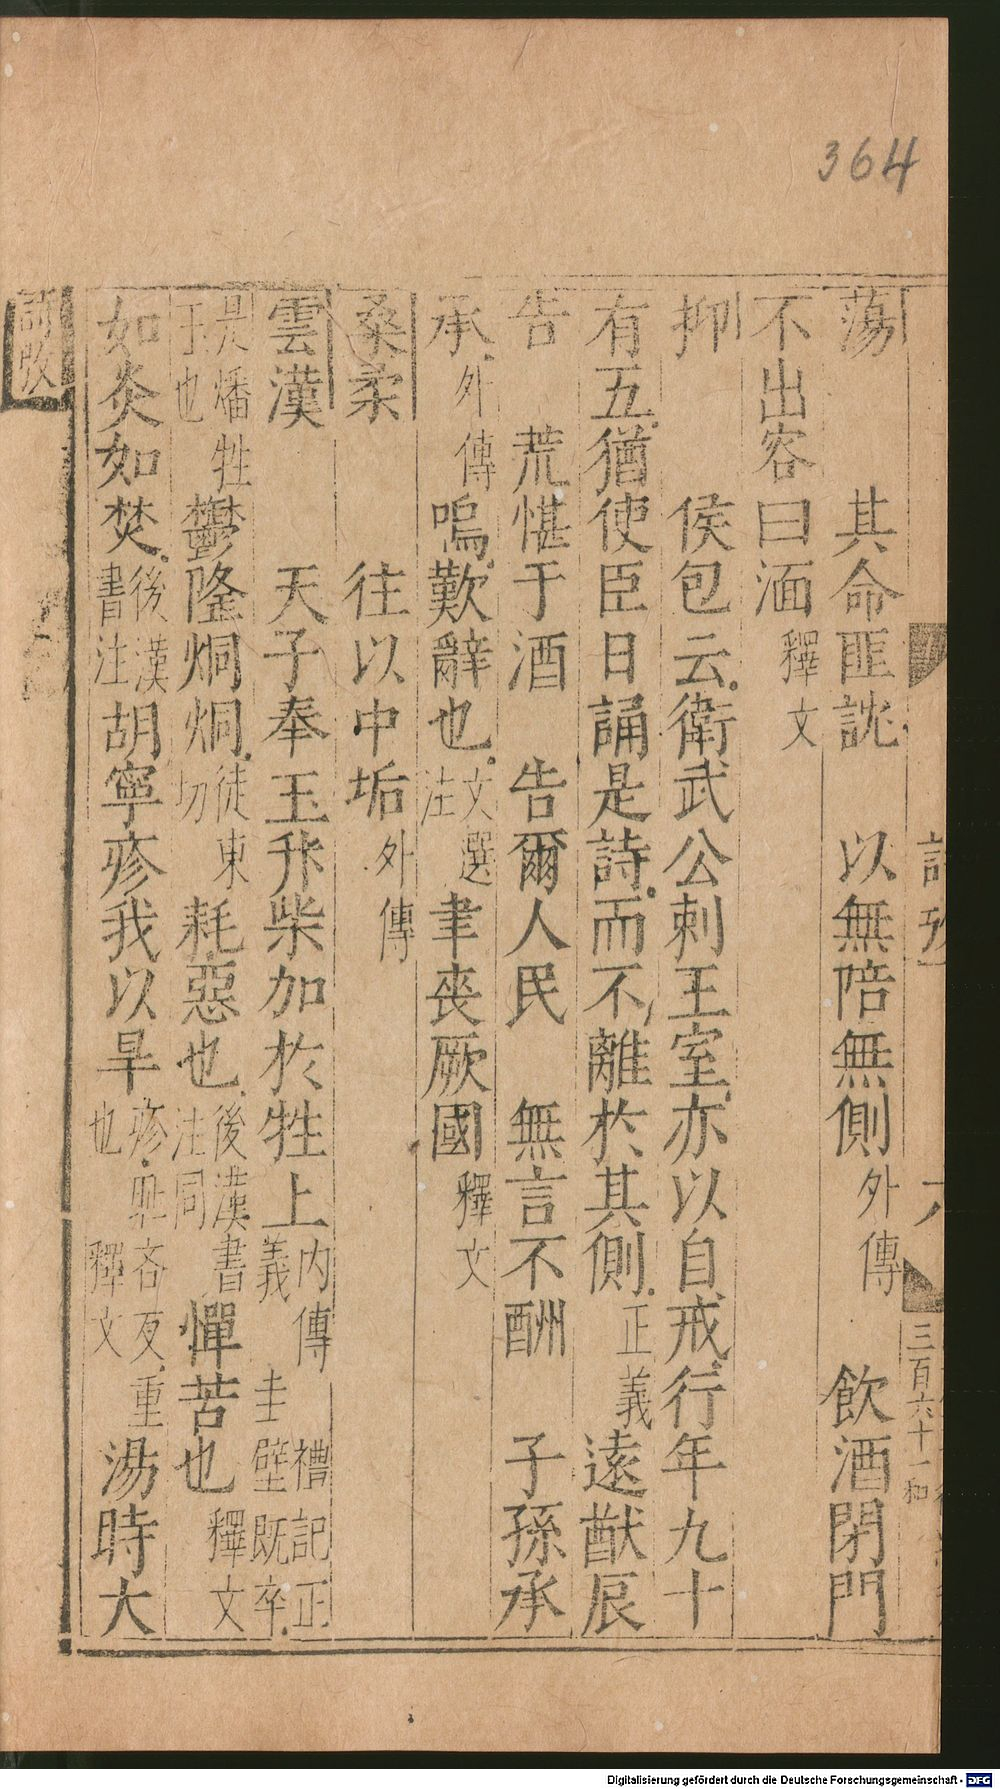 364
蕩　其命匪訦　以無陪無側外傳　飲酒閉門
不出容曰湎釋文
抑　侯包云衛武公刺王室亦以自戒行年九十
有五猶使臣日誦是詩而不離於其側正義　遠猷辰
告　荒愖于酒　告爾人民　無言不酬　子孫承
承外傳　嗚歎辭也文選注　聿喪厥國釋文
桑柔　往以中垢外傳
雲漢　天子奉玉升柴加於牲上內傳　禮記正義　圭璧既卒
是燔牲玉也　鬱隆烔烔徒東切　耗惡也後漢書注同　憚苦也釋文
如炎如焚後漢書注　胡寧疹我以旱疹耻吝反重也釋文　湯時大
三百六十一
Digitalisierung gefördert durch die Deutsche Forschungsgemeinschaft - DFG